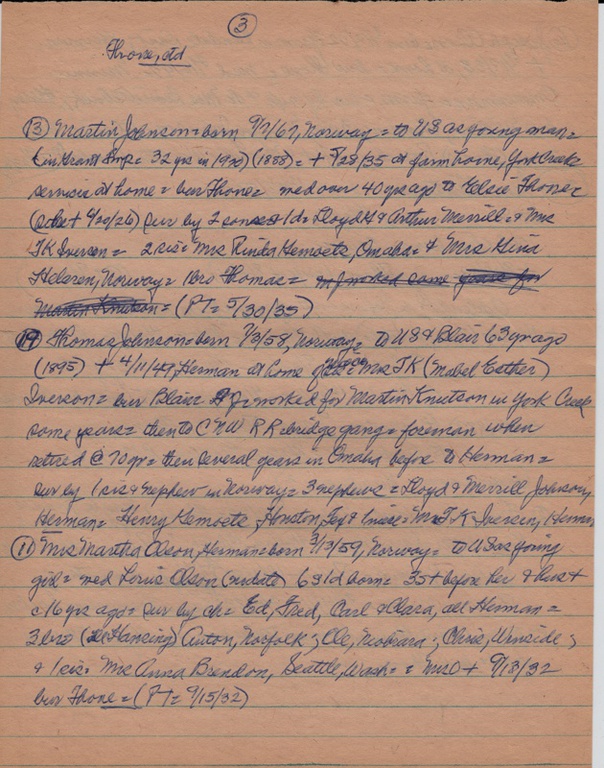 3
Thone, ctd
(13) Martin Johnson = born 9/7/67, Norway = to US as young man =
(in Grant Twp = 32 yrs in 1920) (1888) = + 5/28/35 at farm home, York Creek
services at home = bur Thone = med over 40 yrs ago to Elsie Thone
(she + 4/20/26) sur by 2 sons & 1d = Lloyd H & Arthur Merrill = & Mrs
TK Iversen = 2 sis = Mrs Rinda Hemoets, Omaha = & Mrs Gina
Norway = 1 bro Thomas = worked some years for
Martin Knutson = (PT = 5/30/35)
(14) Thomas Johnson = born 7/3/58, Norway = to US & Blair 63 yr ago
(1895) + 4/11/49, Herman at home of niece = Mrs TK (Mabel Esther)
Iverson = bur Blair = worked for Martin Knutson in York Creek
some years = then to CNW RR bridge gang = foreman when
retired @ 70 yr = then several years in Omaha before to Herman =
sur by 1 sis & nephew in Norway = 3 nephews = Lloyd & Merrill Johnson,
Herman = Henry Hemoets, Houston, Tex & 1 niece = Mrs TK Iversen, Herman
(11) Mrs Martha Olson, Herman = born 3/13/59, Norway = to US as young
girl = med Louis Olson (nodate) 6s 1d born = 3s + before her & hus +
c 16 yrs ago = sur by ch = Ed, Fred, Carl & Clara, all Herman =
3 bro (Hansing) Anton, Norfolk; Ole, Niobrara; Chris, Winside;
& 1 sis. Mrs Anna Brendon, Seattle, Wash = = MsO + 9/13/32
bur Thone = (PT = 9/15/32)